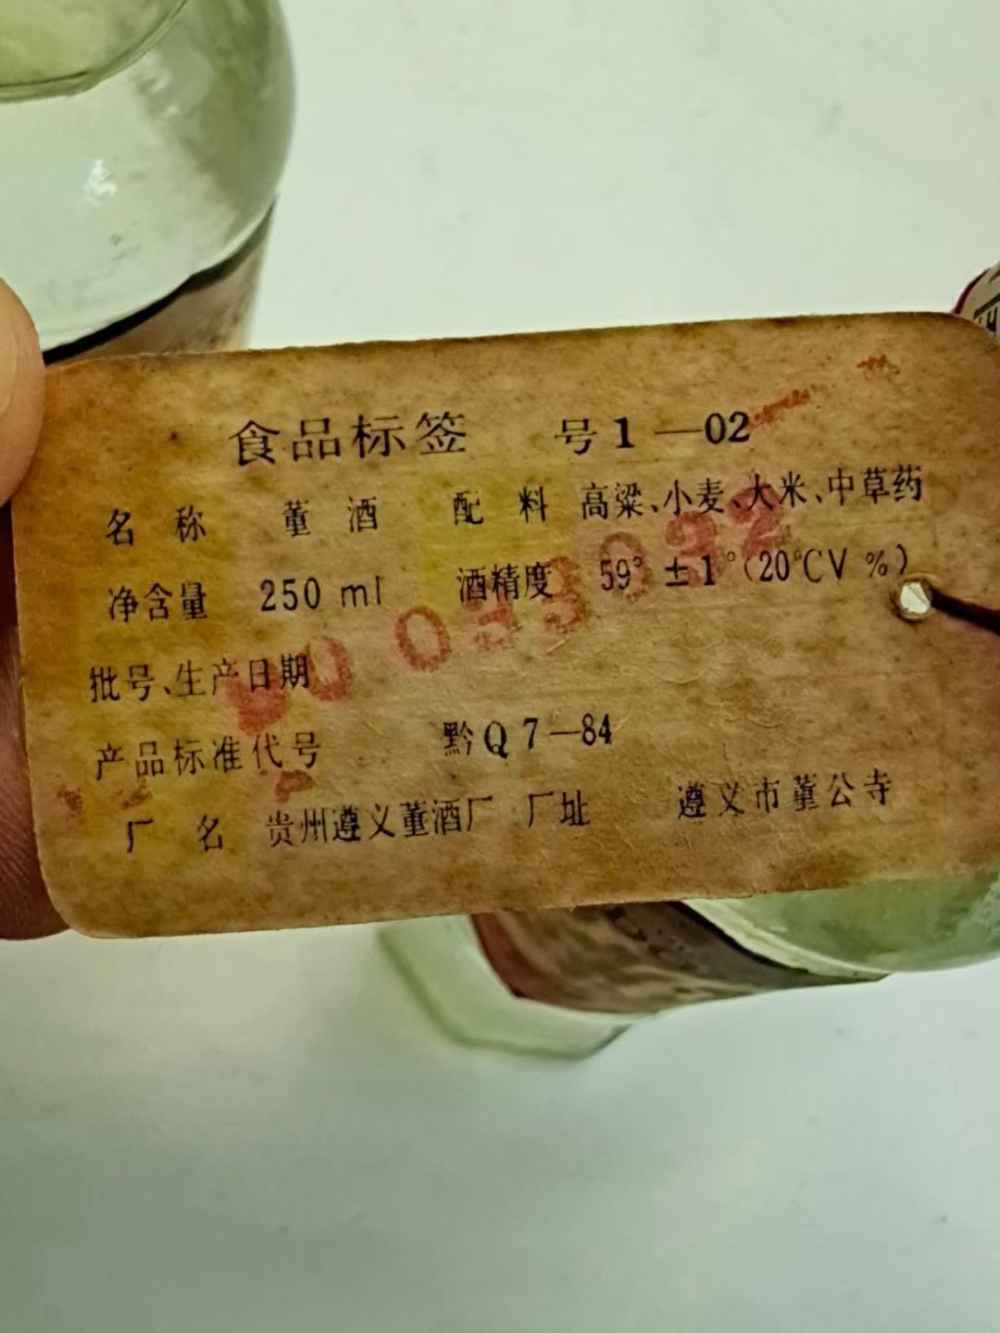 食品标签 号1—02
名称 董酒 配料 高粱、小麦、大米、中草药
净含量 250 ml 酒精度 59°±1°(20℃V %)
批号、生产日期
产品标准代号 黔Q7—84
厂名 贵州遵义董酒厂 厂址 遵义市董公寺